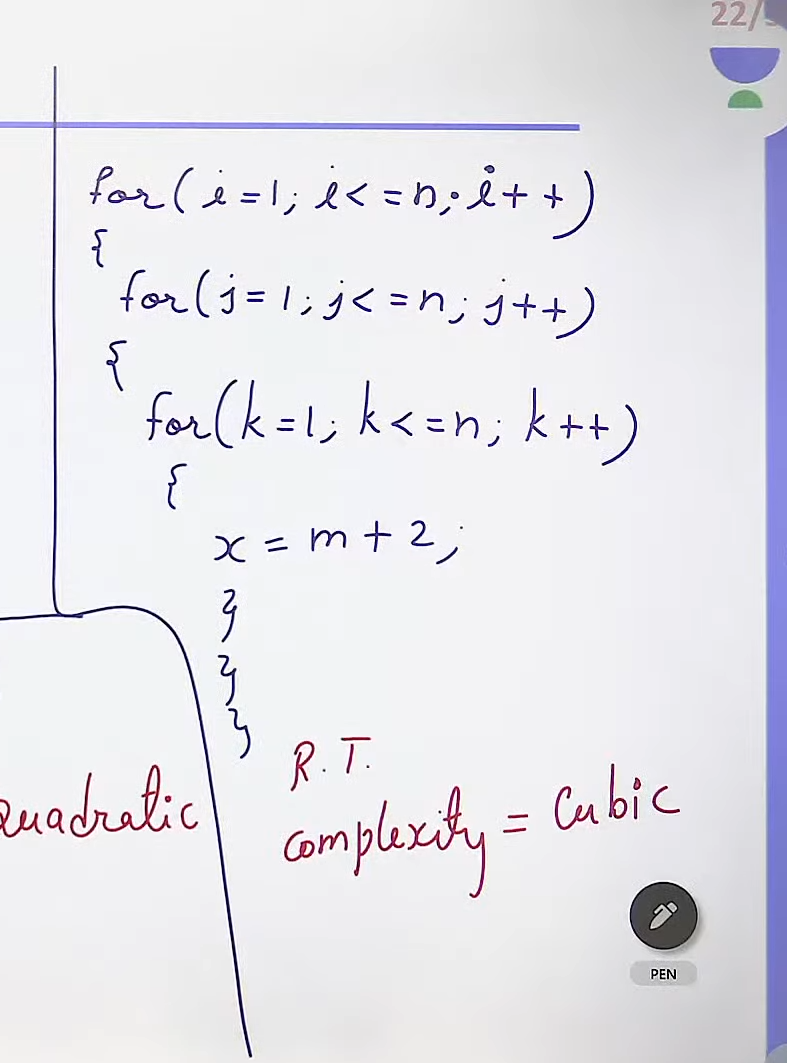 22/
for(i=1; i<=n; i++)
{
for(j=1; j<=n; j++)
{
for(k=1; k<=n; k++)
{
x = m + 2;
}
}
}
R.T.
quadratic
complexity = Cubic
PEN